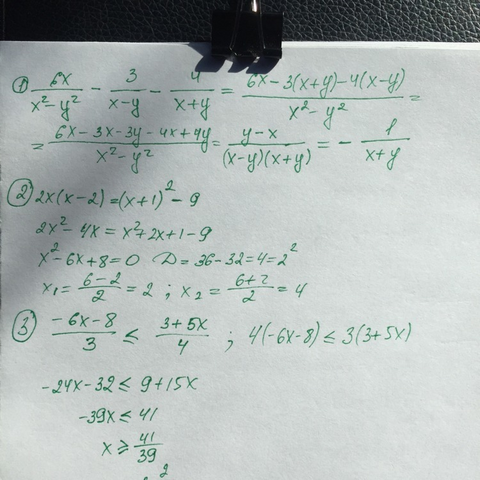 ① 6x/(x²-y²) - 3/(x-y) - 4/(x+y) = (6x-3(x+y)-4(x-y))/(x²-y²) =
= (6x-3x-3y-4x+4y)/(x²-y²) = (y-x)/((x-y)(x+y)) = - 1/(x+y)
② 2x(x-2)=(x+1)²-9
2x²-4x=x²+2x+1-9
x²-6x+8=0 D=36-32=4=2²
x₁=(6-2)/2=2 ; x₂=(6+2)/2=4
③ (-6x-8)/3 ≤ (3+5x)/4 ; 4(-6x-8)≤3(3+5x)
-24x-32≤9+15x
-39x≤41
x≥41/39